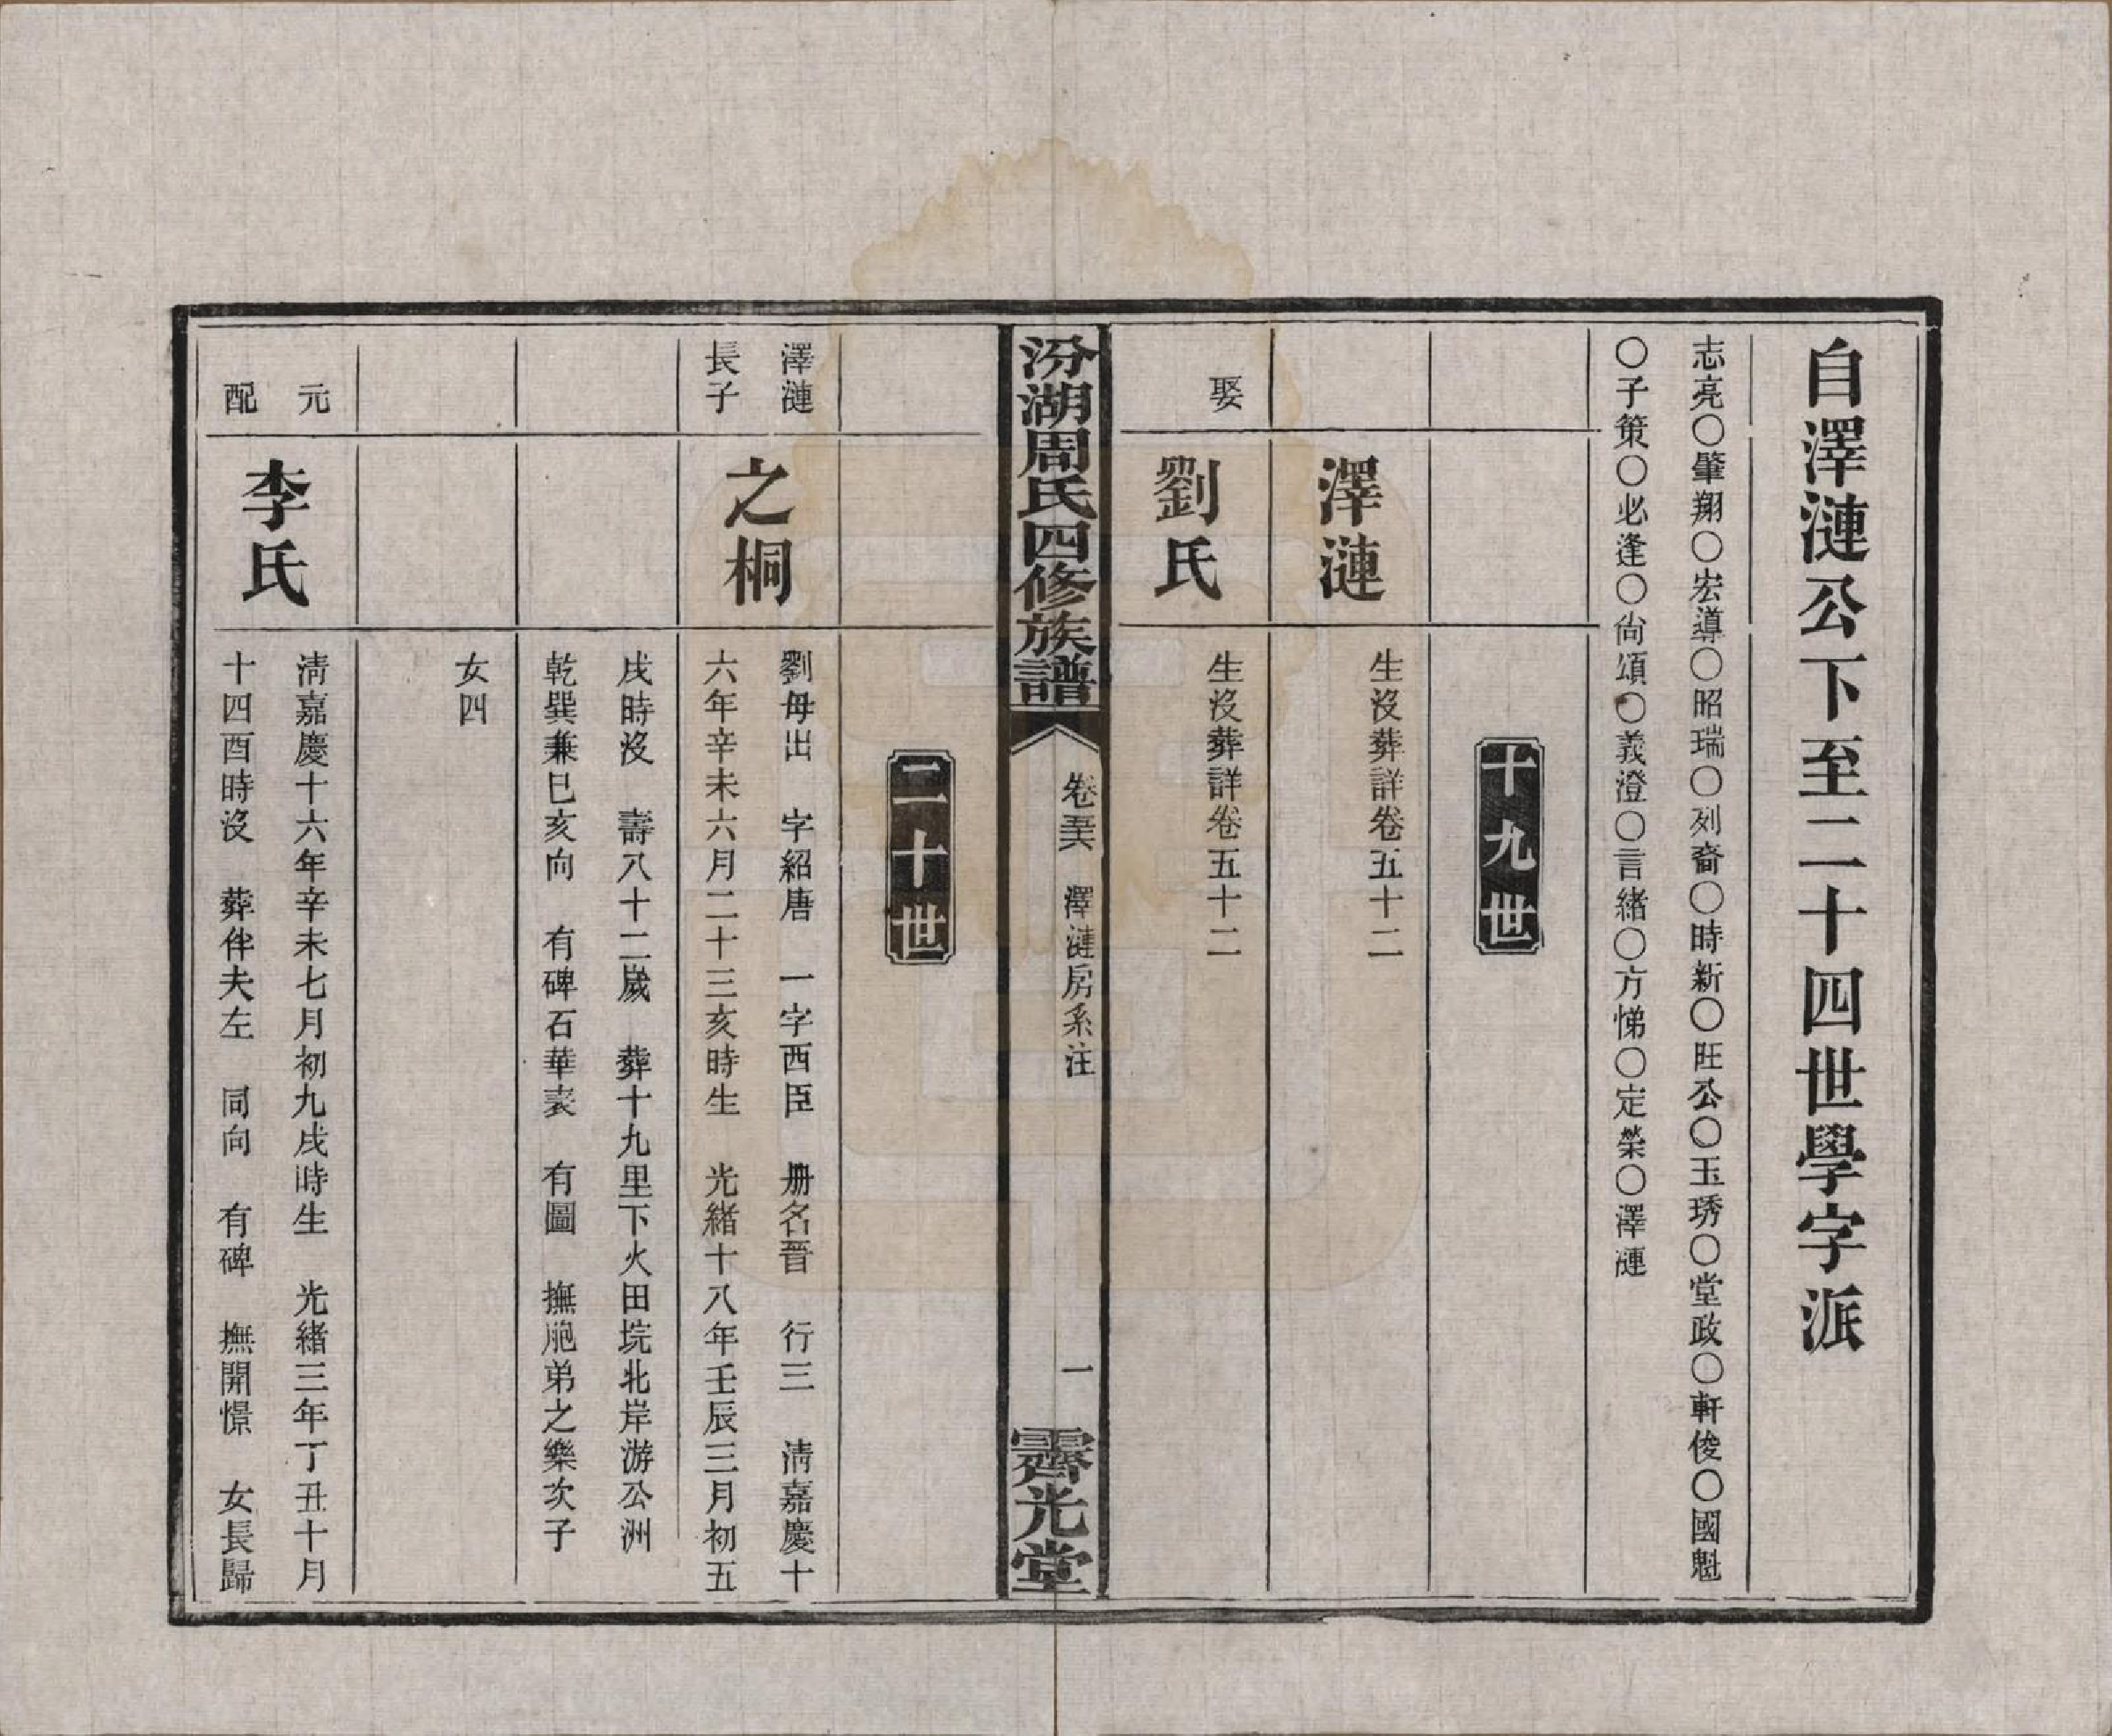 自澤漣公下至二十四世學字派
志亮〇肇翔〇宏導〇昭瑞〇列裔〇時新〇旺公〇玉琇〇堂政〇軒俊〇國魁
〇子策〇必逢〇尙頌〇義澄〇言緒〇方悌〇定榮〇澤漣
十九世
澤漣
生沒葬詳卷五十二
娶
劉氏
生沒葬詳卷五十二
汾湖周氏四修族譜
卷 澤漣房系注
一
霽光堂
二十世
澤漣
長子
之桐
劉母出 字紹唐 一字西臣 册名晉 行三 淸嘉慶十
六年辛未六月二十三亥時生 光緒十八年壬辰三月初五
戌時沒 壽八十二歲 葬十九里下火田垸北岸游公洲
乾巽兼巳亥向 有碑石華表 有圖 撫胞弟之樂次子
女四
元
配
李氏
淸嘉慶十六年辛未七月初九戌時生 光緒三年丁丑十月
十四酉時沒 葬伴夫左 同向 有碑 撫開憬 女長歸